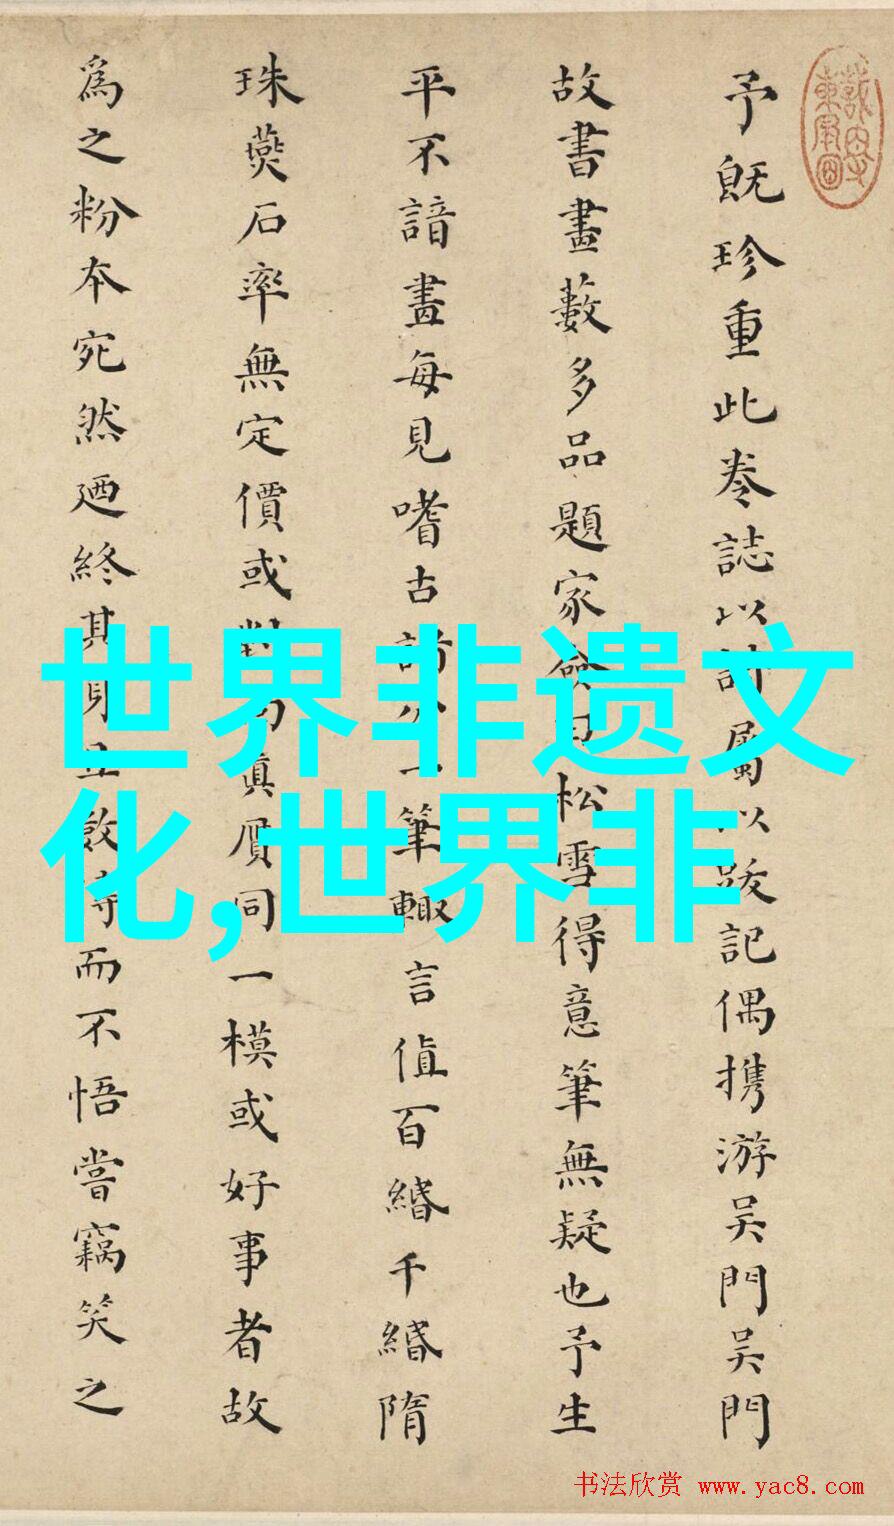 予既珍重此卷誌以詩屬以跋記偶攜游吳門吳門
故書畫藪多品題家僉曰松雪得意筆無疑也予生
平不諳畫每見嗜古訪公一筆輙言值百緡千緡隋
珠燕石率無定價或對勾眞贋同一模或好事者故
為之粉本宛然廼終其身丑敝待而不悟嘗竊笑之
世界非遗文
化,世界非
书法欣赏 www.yac8.com